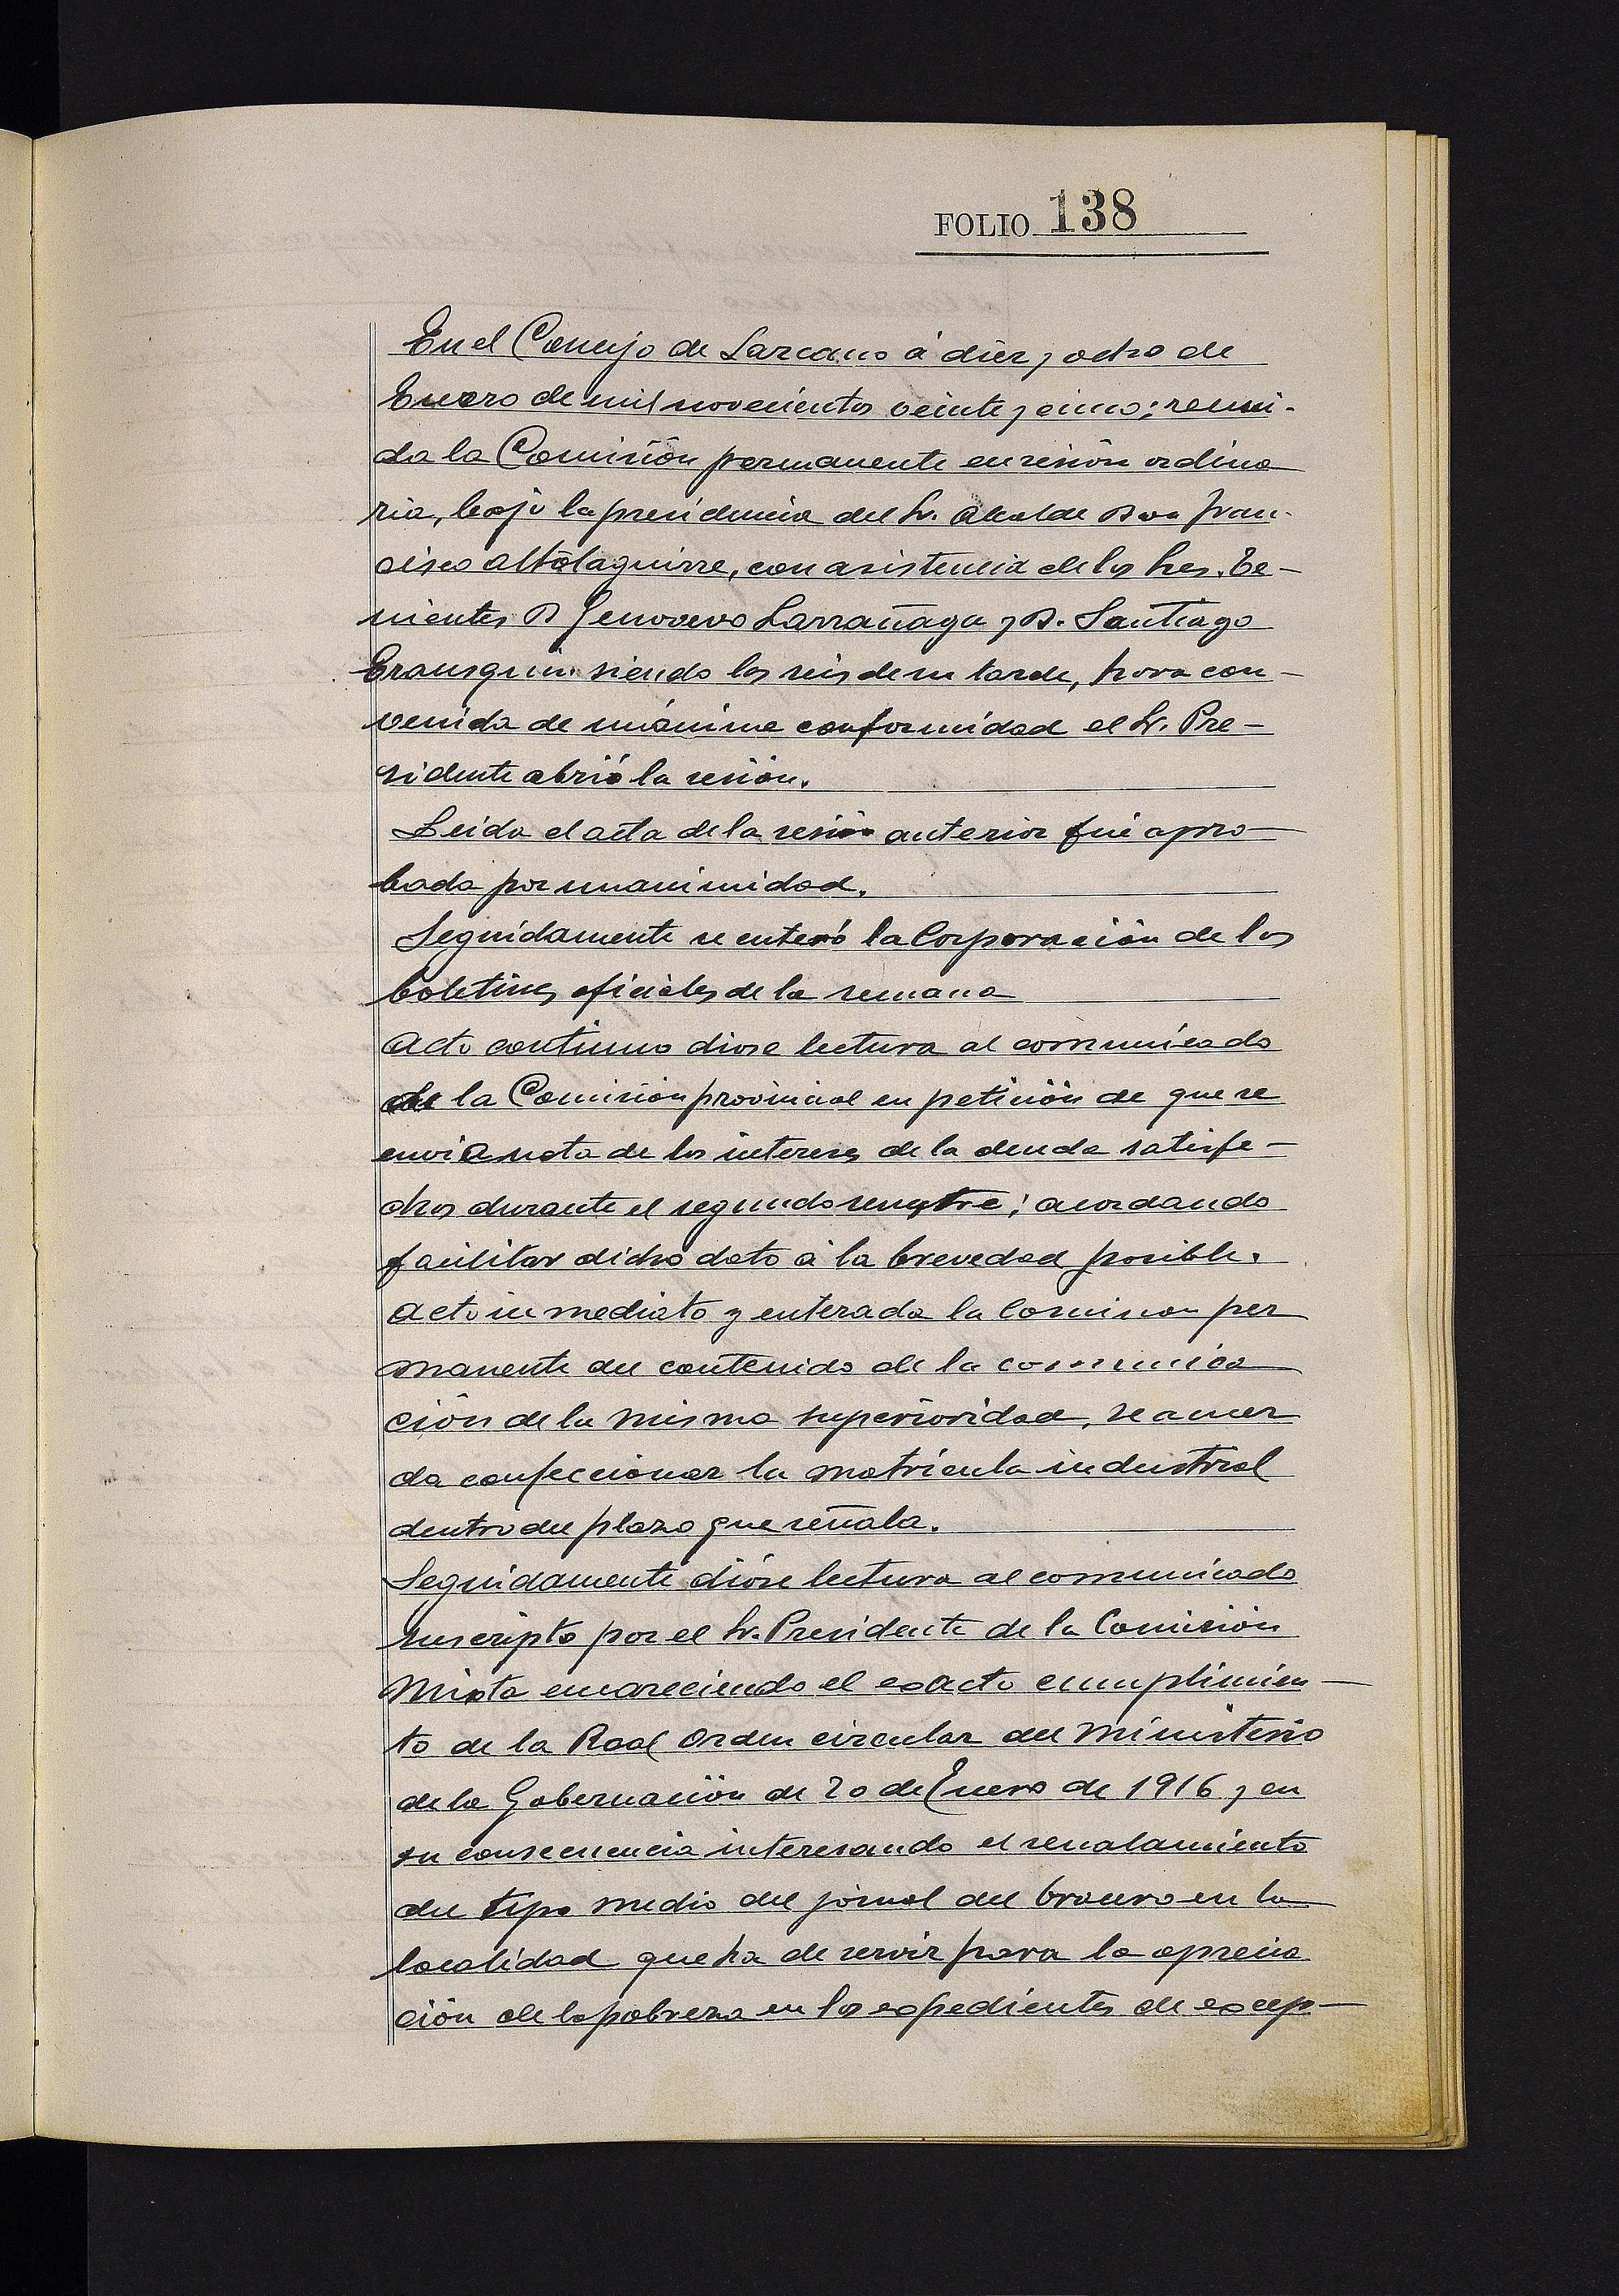 FOLIO 138
En el Concejo de Lazcano á diez y ocho de
Enero de mil novecientos veinte y cinco; reuni-
da la Comisión permanente en sesión ordina
ria, bajo la presidencia del Sr. Alcalde Don Fran-
cisco Altolaguirre, con asistencia de los Sres. Te-
nientes D Genovevo Larrañaga y D. Santiago
Erausquin siendo las seis de su tarde, hora con-
venida de unánime conformidad el Sr. Pre-
sidente abrió la sesión.
Leida el acta de la sesión anterior fué apro-
bada por unanimidad.
Seguidamente se enteró la Corporación de los
boletines oficiales de la semana
Acto continuo diose lectura al comunicado
de la Comisión provincial en petición de que se
envie nota de los intereses de la deuda satisfe-
chos durante el segundo semestre; acordando
facilitar dicho dato á la brevedad posible.
Acto inmediato y enterada la Comision per
manente del contenido de la comunica
ción de la misma superioridad, se acuer
da confeccionar la matrícula industrial
dentro del plazo que señala.
Seguidamente dióse lectura al comunicado
suscripto por el Sr. Presidente de la Comisión
Mixta encareciendo el exacto cumplimien-
to de la Real Orden circular del Ministerio
de la Gobernación de 20 de Enero de 1916 y en
su consecuencia interesando el senalamiento
del tipo medio del jornal del bracero en la
localidad que ha de servir para la aprecia
ción de la pobreza en los expedientes de excep-